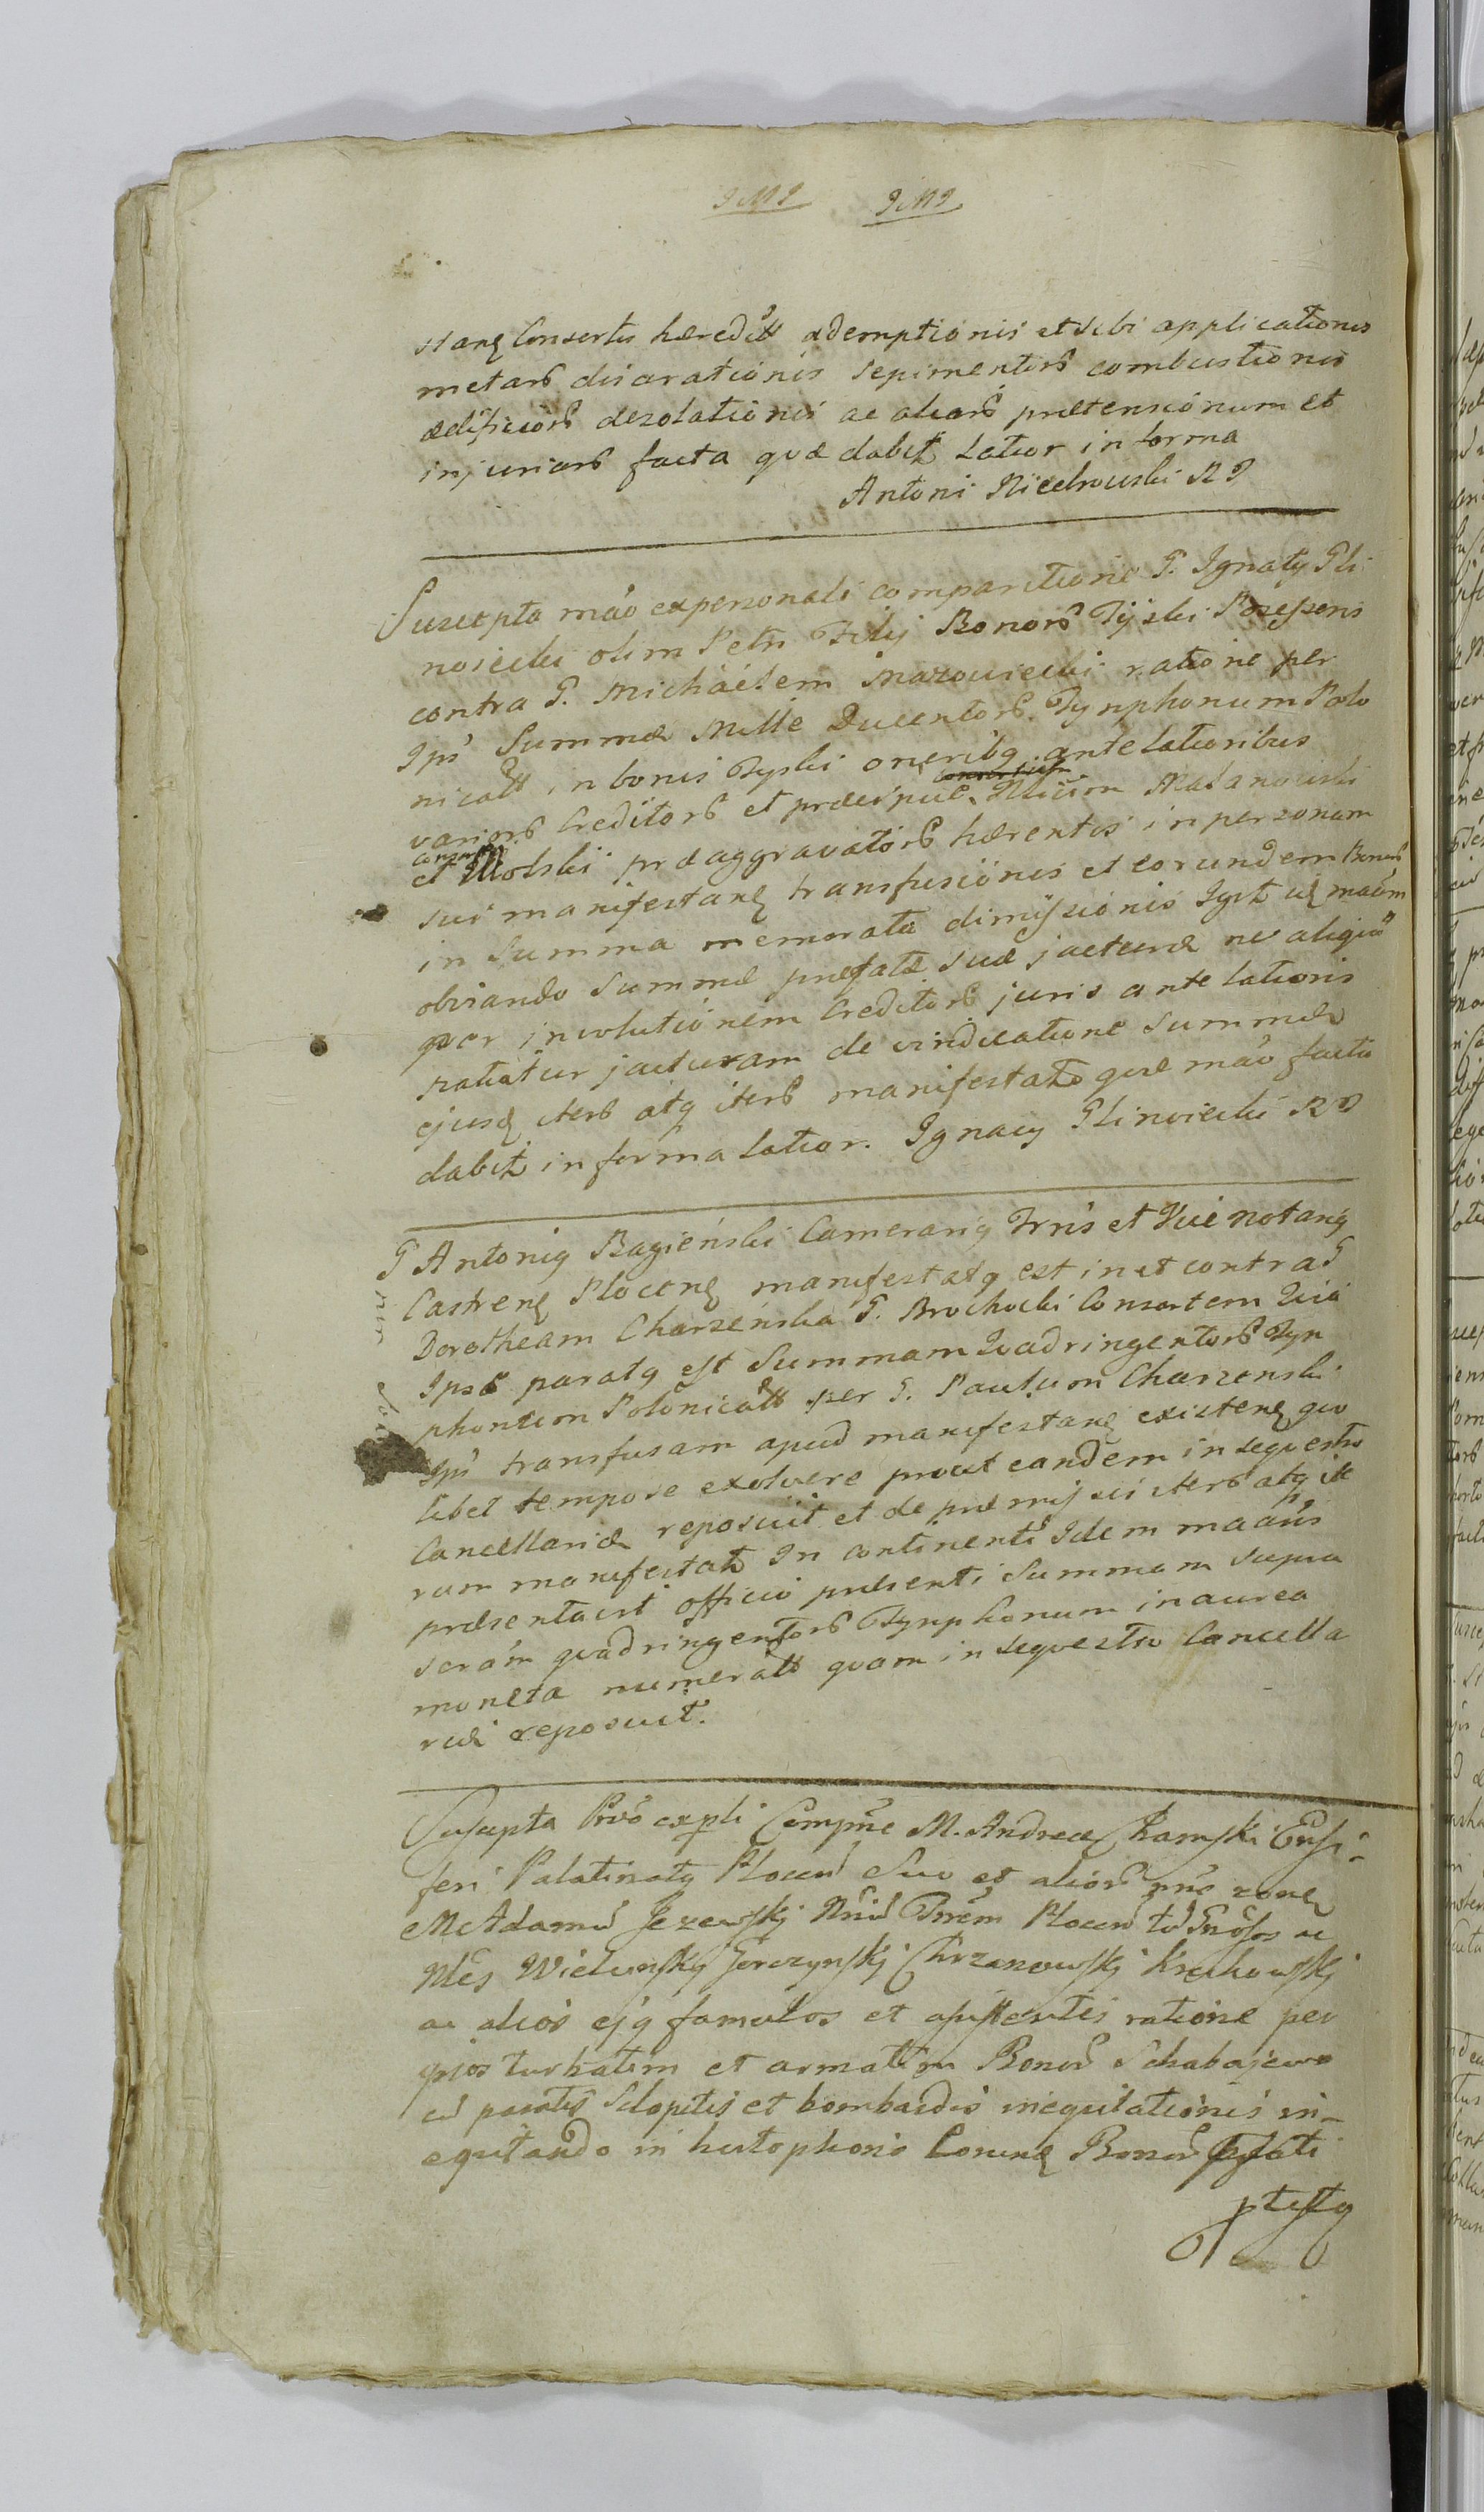 JMJ JMJ
stanę Consortis hæreditt ademptionis et sibi applicationis
metarb disarationis sepimentorb combustionis
ædificiorb dezolationis ac aliarb prætensionum et
injuriarb facta quæ dabit latior in forma
Antoni Niechrowski RP
Suscepta mão expersonali comparitione G. Ignaty Gli-
noiecki olim Petri Filij Bonorb Tyski Possessoris
contra G. Michäelem Mazowiecki ratione per
Ips Summæ Mille Ducentorb Tynphonum Polo
nicall in bonis Tyski oneribq antelationibus
variorb Creditorb et præcipue Malanowski
et Molski præaggravatorb hærentis in personam
sui manifestanę transfusionis et eorundem Bonorb
in Summa memorata dimissionis Igit
obviando Summæ præfatæ suæ jacturæ ne aliquã
per involutionem Creditorb juris antelationis
patiatur jacturam de vindicatione Summæ
ejusq iterb atq iterb manifestatẽ quæ mão facta
dabit in forma latior. Ignacy Glinoiecki RP
G Antoniq Bagieński Camerariq Trris et Vice notariq
Castrenę Plocenę manifestatq est in et contra G
Dorotheam Charzeńska G. Brochocki Consortem Quia
Ipse paratq est Summam Quadringentorb Tyn
phonum Polonicall per G. Paulum Charzenski
Ips transfusam apud manifestanę existenę quo
libet tempore exolvere prout eandem in seqvestro
Cancellariæ reposuit et de præmissis iterb atq ite
rum manifestatẽ In continenti Idem
præsentavit officio præsenti Summam supra
scram quadringentorb Tynphonum in aurea
moneta numerall quam in seqvestro Cancella
riæ reposuit.
Suscepta Prõo expli Compñe M. Andreæ Chamski Ensi-
feri Palatinatq Plocen Suo et alior nñe
M. Adamũ Jezewskj Trrem Plocen Gñosos ac
Nles Wielunskj Gorczynskj Chrzanowskj Krukowskj
ac alios ejq famulos et assistentes ratione per
ipsos turbatim et armatim Bonor Schabajewo
cũ paratis Sclopetis et bombardis ineqvitationis in-
eqvitando in hostophoris Bonor Præfati
ptestq